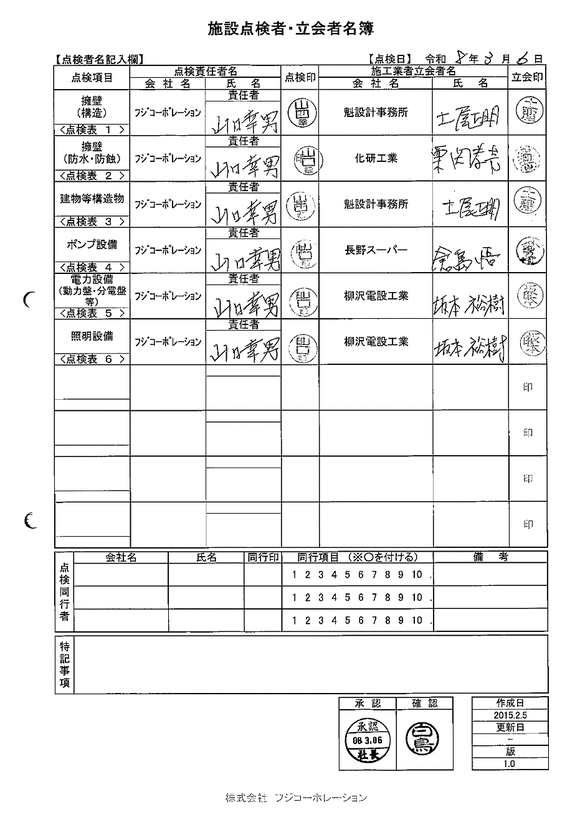 施設点検者・立会者名簿
【点検者名記入欄】
【点検日】 令和 8 年 3 月 6 日
点検項目 点検責任者名 点検印 施工業者立会者名 立会印
会社名 氏名 会社名 氏名
擁壁
(構造)
<点検表 1 >
フジコーポレーション
責任者
山口幸男
魁設計事務所
土屋正明
擁壁
(防水・防蝕)
<点検表 2 >
フジコーポレーション
責任者
山口幸男
化研工業
建物等構造物
<点検表 3 >
フジコーポレーション
責任者
山口幸男
魁設計事務所
土屋正明
ポンプ設備
<点検表 4 >
フジコーポレーション
責任者
山口幸男
長野スーパー
倉島 悟
電力設備
(動力盤・分電盤
等)
<点検表 5 >
フジコーポレーション
責任者
山口幸男
柳沢電設工業
坂本裕樹
照明設備
<点検表 6 >
フジコーポレーション
責任者
山口幸男
柳沢電設工業
坂本裕樹
印
印
印
印
点検同行者
会社名 氏名 同行印 同行項目 (※○を付ける) 備考
1 2 3 4 5 6 7 8 9 10 .
1 2 3 4 5 6 7 8 9 10 .
1 2 3 4 5 6 7 8 9 10 .
特記事項
承認 確認
承認
08.3.06
社長
白鳥
作成日
2015.2.5
更新日
-
版
1.0
株式会社 フジコーポレーション